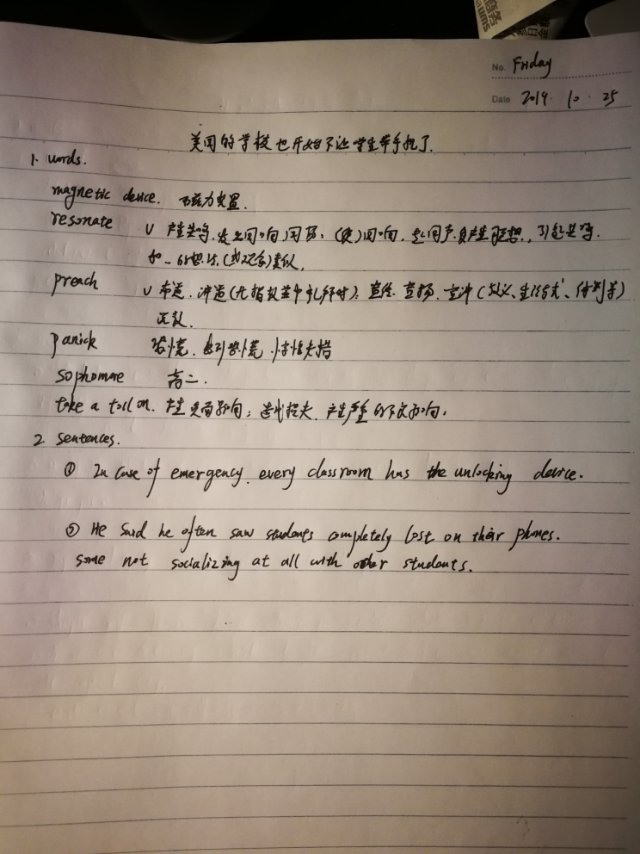 No. Friday
Date 2019. 10. 25
美国的学校也开始不让学生带手机了.
1. words.
magnetic device. 磁力装置.
resonate v 产生共鸣. 发出回响,回荡. (使)回响. 起回声,使产生联想. 引起共鸣.
和…的想法.(或观念)类似.
preach v 布道. 讲道(尤指教堂中礼拜时); 宣传. 宣扬. 宣讲(教义、生活方式、体制等)
panick 恐慌. 惊慌. 惊慌失措
sophomore 高二.
take a toll on. 产生负面影响; 造成损失. 产生严重的不良影响.
2. Sentences.
① In case of emergency, every classroom has the unlocking device.
② He said he often saw students completely lost on their phones.
some not socializing at all with other students.